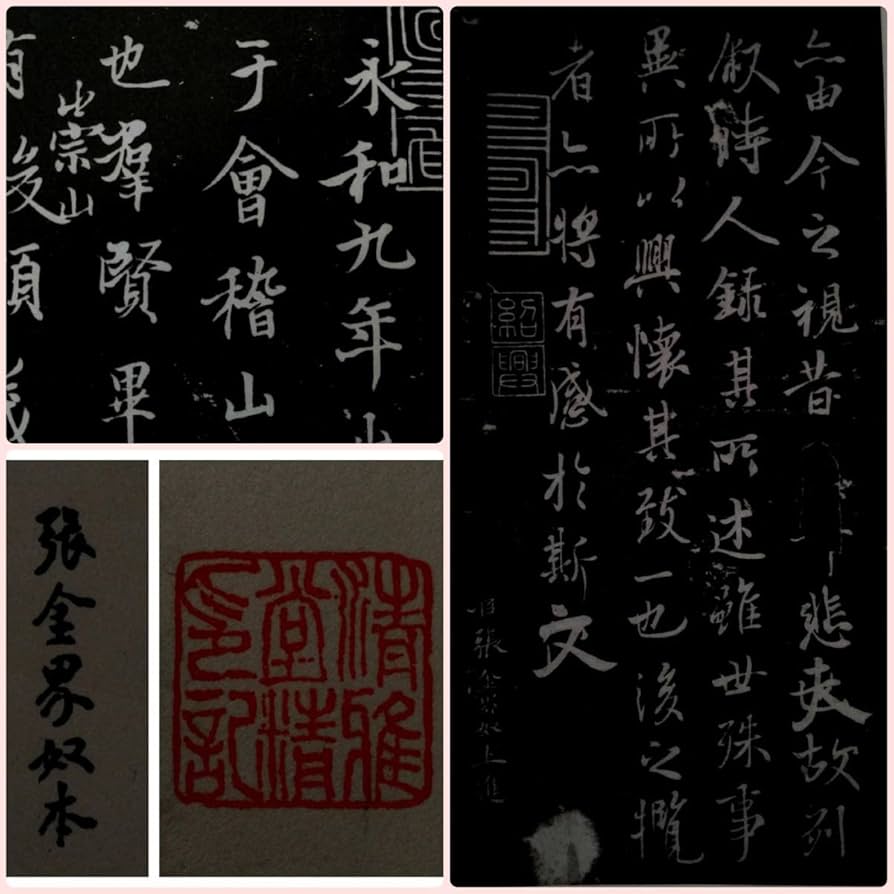 永和九年
于會稽山
也羣賢畢
崇山
有峻領茂
亦由今之視昔悲夫故列
叙時人錄其所述雖世殊事
異所以興懷其致一也後之攬
者亦將有感於斯文
紹興
臣張金界奴上進
張金界奴本
清雅堂精印記